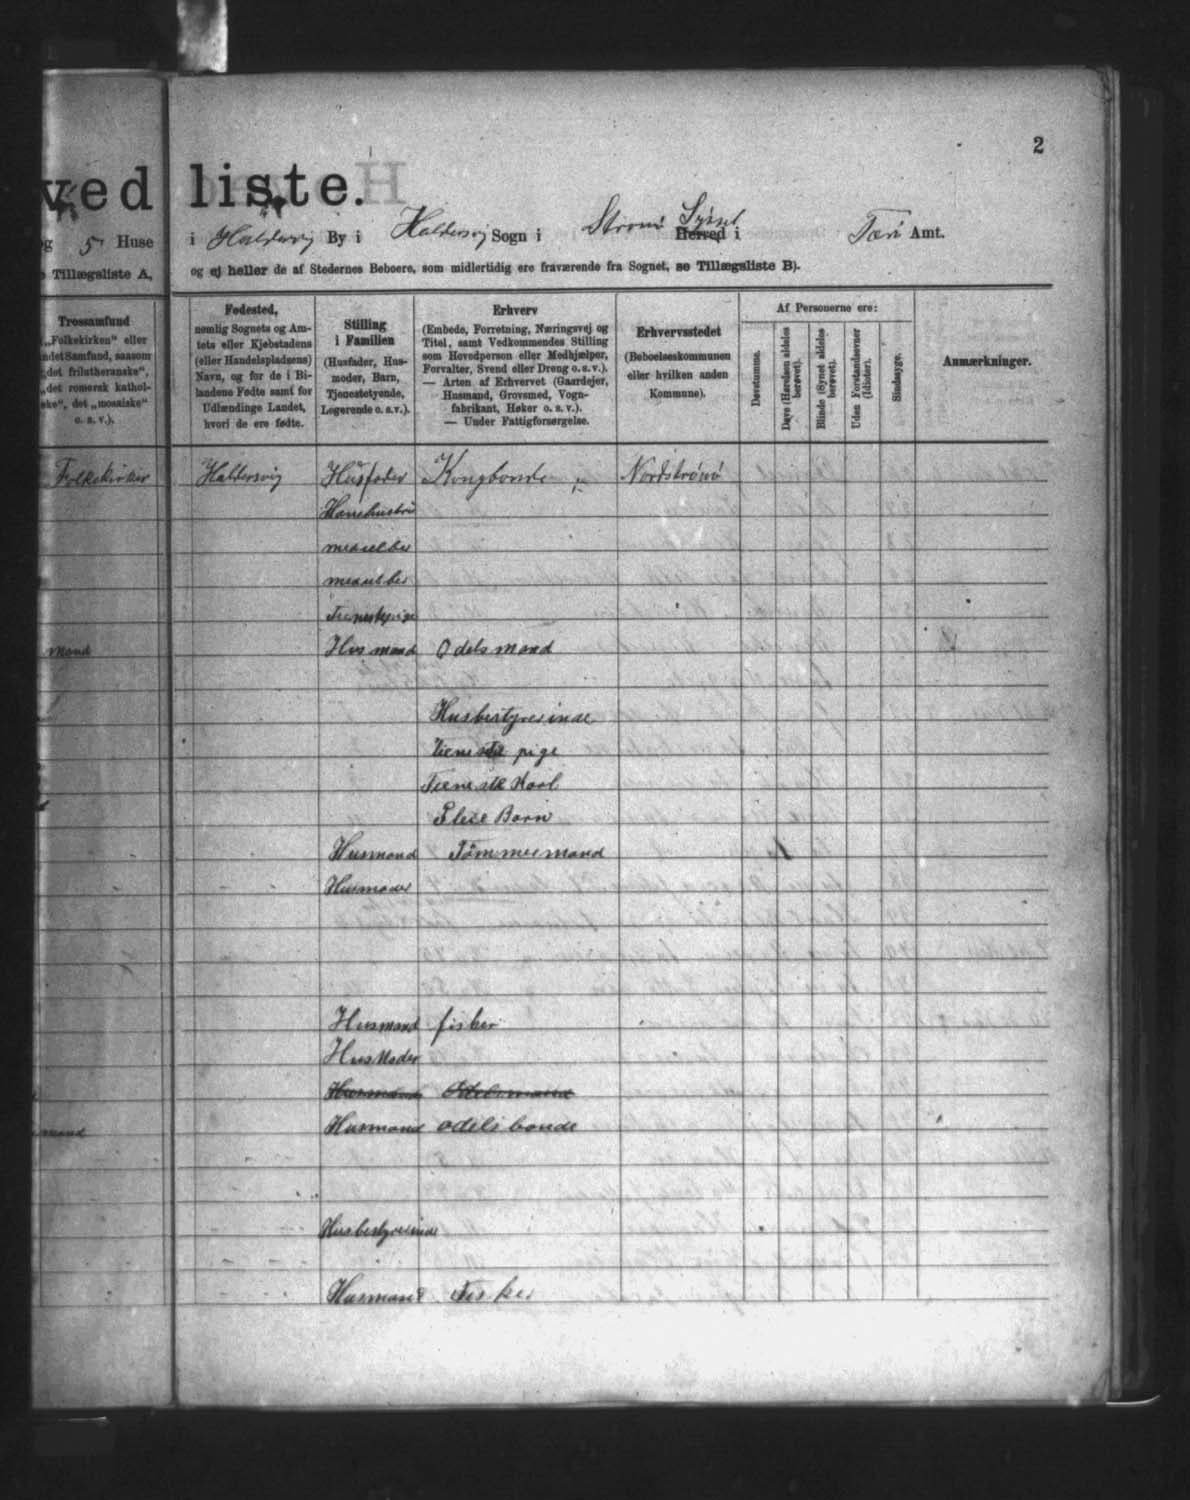 2
ved liste.
og 5 Huse i Haldersvig By i Haldersvig Sogn i Strømø Syssel Herred i Færø Amt.
Tillægsliste A, og ej heller de af Stedernes Beboere, som midlertidig ere fraværende fra Sognet, se Tillægsliste B).
Trossamfund
„Folkekirken" eller
andet Samfund, saasom
„det frilutheranske",
„det romersk kathol-
ske", det „mosaiske"
o. s. v.).
Fødested,
nemlig Sognets og Am-
tets eller Kjøbstadens
(eller Handelspladsens)
Navn, og for de i Bi-
landene Fødte samt for
Udlændinge Landet,
hvori de ere fødte.
Stilling
i Familien
(Husfader, Hus-
moder, Barn,
Tjenestetyende,
Logerende o. s. v.).
Erhverv
(Embede, Forretning, Næringsvej og
Titel, samt Vedkommendes Stilling
som Hovedperson eller Medhjælper,
Forvalter, Svend eller Dreng o. s. v.).
— Arten af Erhvervet (Gaardejer,
Husmand, Grovsmed, Vogn-
fabrikant, Høker o. s. v.).
— Under Fattigforsørgelse.
Erhvervsstedet
(Beboelseskommunen
eller hvilken anden
Kommune).
Af Personerne ere:
Døvstumme.
Døve (Hørelsen aldeles
berøvet).
Blinde (Synet aldeles
berøvet).
Uden Forstandsevner
(Idioter).
Sindssyge.
Anmærkninger.
Folkekirken Haldersvig Husfader Kongbonde Nordstrømø
Hans hustru
Tienestepige
mand Husmand Odelsmand
Husbestyrerinde
Tieneste pige
Tieneste Karl
Pleie Barn
Husmand Tömmermand
Husmoder
Husmand fisker
HusModer
Husmand Odelsmand
mand Husmand odelsbonde
Husbestyrerinde
Husmand Fisker